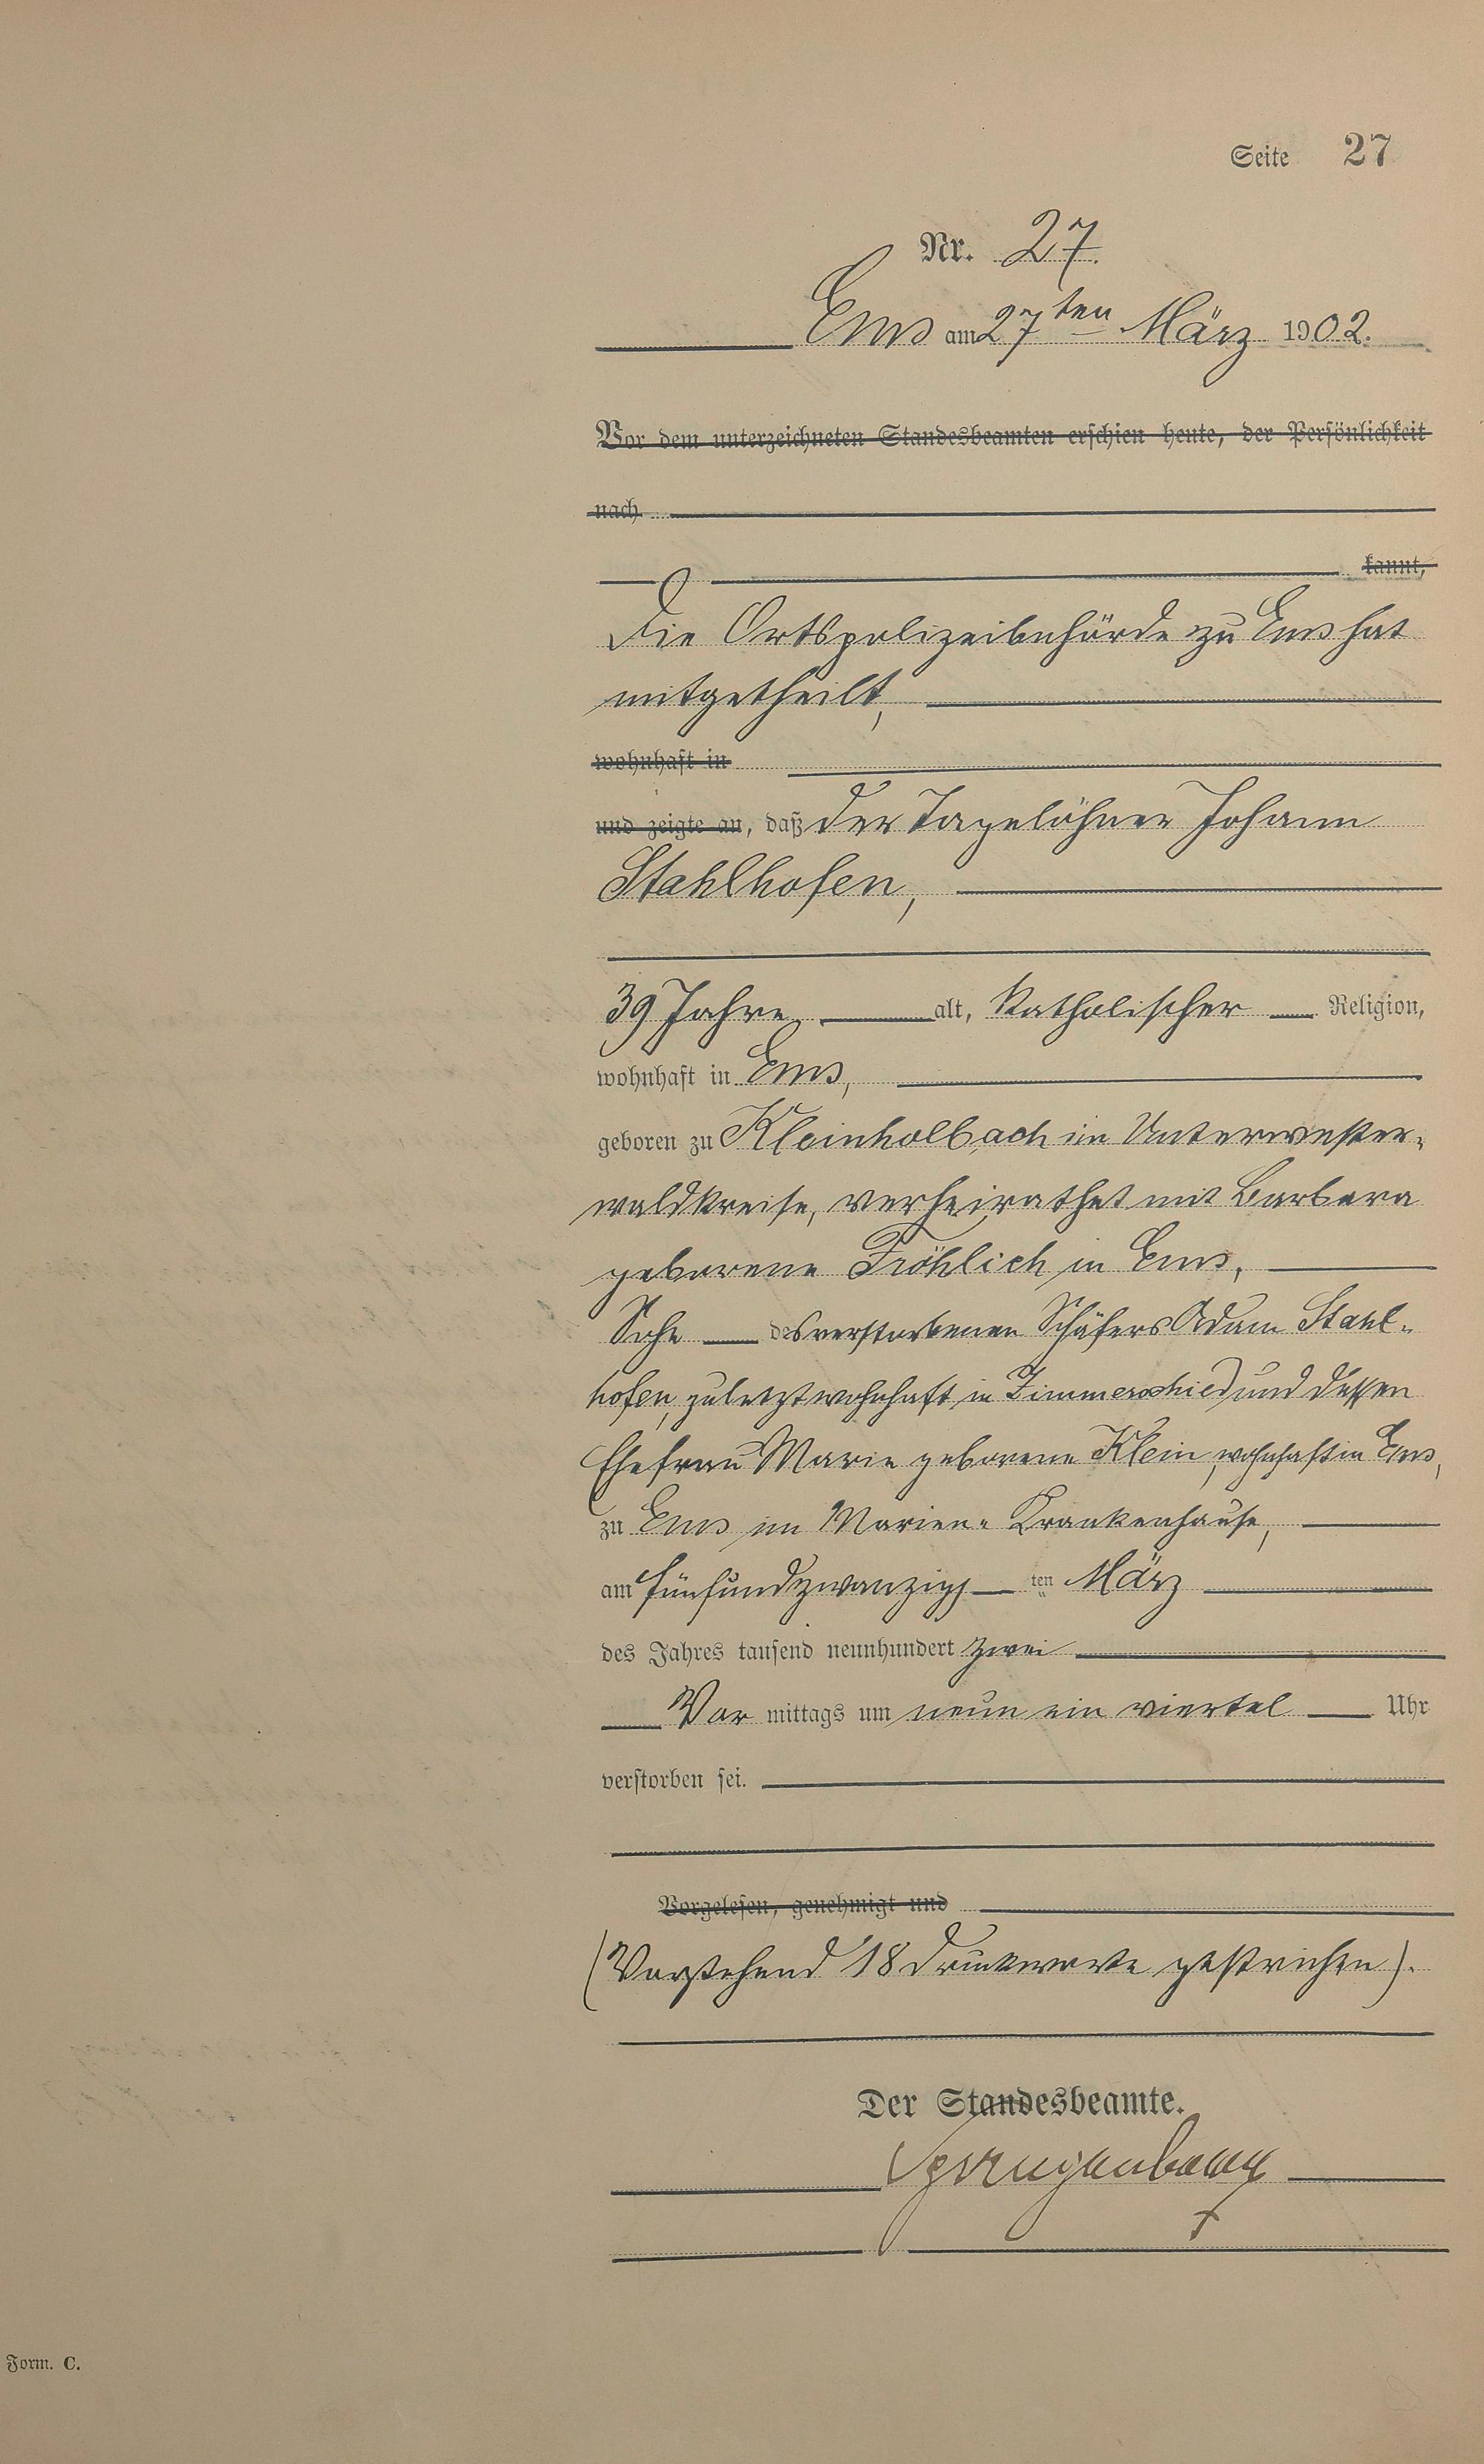 Seite 27
Nr. 27.
Ems am 27ten März 1902.
Vor dem unterzeichneten Standesbeamten erschien heute, der Persönlichkeit
nach
kannt,
Die Ortspolizeibehörde zu Ems hat
mitgetheilt,
wohnhaft in
und zeigte an, daß der Tagelöhner Johann
Stahlhofen,
39 Jahre alt, katholischer Religion,
wohnhaft in Ems,
geboren zu Kleinholbach im Unterwester-
waldkreise, verheirathet mit Barbara
geborene Fröhlich in Ems,
Sohn des verstorbenen Schäfers Adam Stahl-
hofen, zuletzt wohnhaft in Zimmerschied und dessen
Ehefrau Marie geborene Klein, wohnhaft in Ems,
zu Ems im Marien-Krankenhause,
am fünfundzwanzig ten März
des Jahres tausend neunhundert zwei
Vor mittags um neun ein viertel Uhr
verstorben sei.
Vorgelesen, genehmigt und
(Vorstehend 18 Druckworte gestrichen).
Der Standesbeamte.
Form. C.